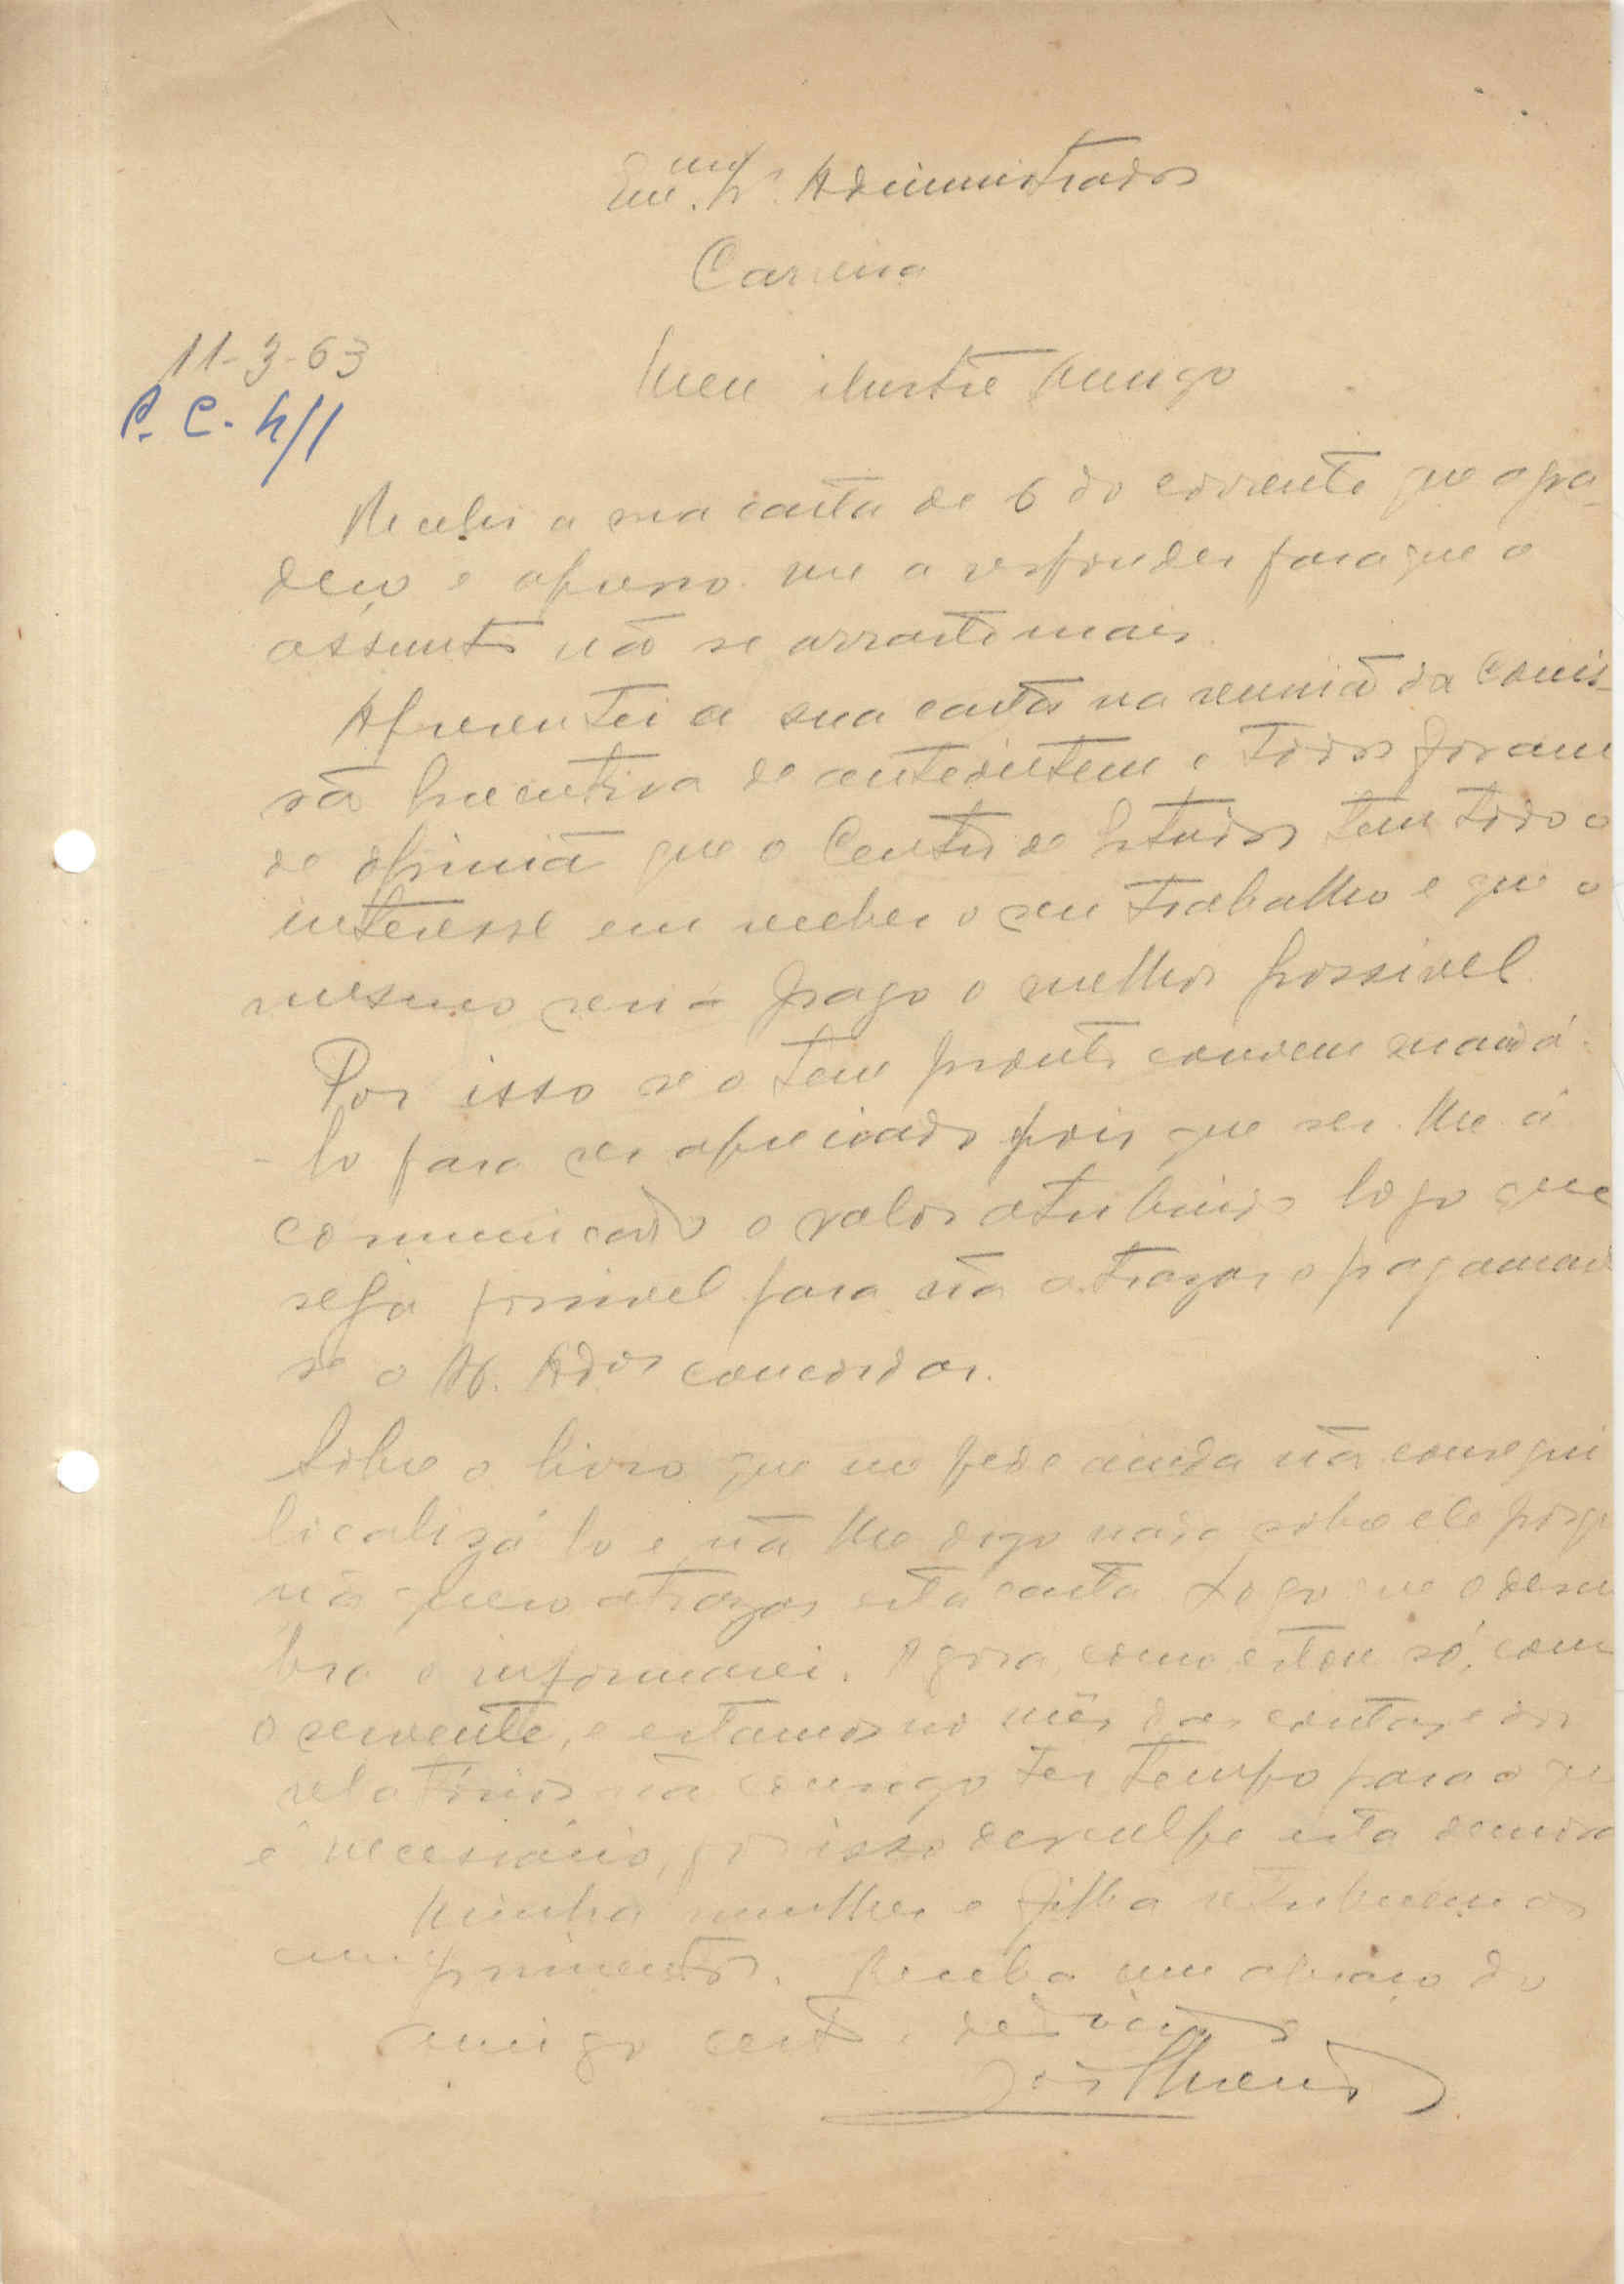 Exmo. Sr. Administrador
Carreira
11-3-63
P. C. h/1
Meu ilustre Amigo
Recebi a sua carta de 6 do corrente que agra-
deço e apresso-me a responder para que o
assunto não se arraste mais.
Apresentei a sua carta na reunião da Comis-
são Executiva de anteontem e todos foram
de opinião que o Centro de Estudos tem todo o
interesse em receber o seu trabalho e que o
mesmo será pago o melhor possivel.
Por isso se o tem pronto convem mandá-
-lo para ser apreciado pois que ser-lhe-á
comunicado o valor atribuido logo que
seja possivel para não atrazar o pagamento
se o Sr. Ador concordar.
Sobre o livro que me pede ainda não consegui
localizá-lo e não lhe digo nada sobre ele porque
não quero atrazar esta carta. Logo que o descu
bra o informarei. Agora, como estou só, com
o servente, e estamos no mês das contas e dos
relatórios não consigo ter tempo para o que
é necessário, por isso desculpe esta demora
Minha mulher e filha retribuem os
cumprimentos. Receba um abraço do
amigo certo e dedicado